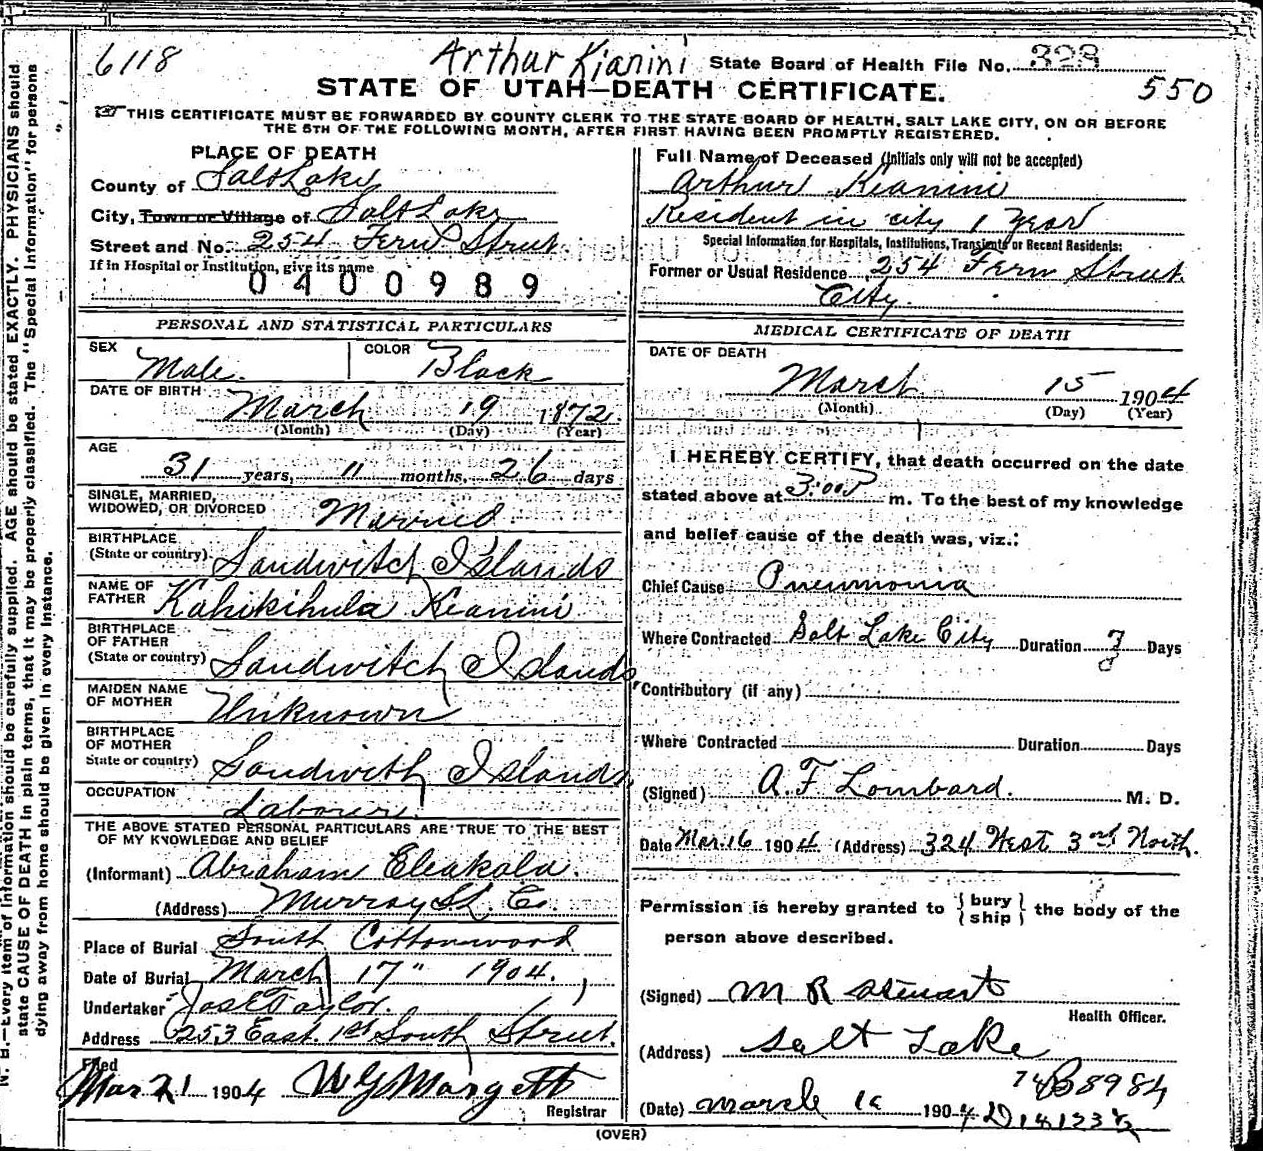 6118 Arthur Kianini State Board of Health File No. 323
STATE OF UTAH—DEATH CERTIFICATE. 550
THIS CERTIFICATE MUST BE FORWARDED BY COUNTY CLERK TO THE STATE BOARD OF HEALTH, SALT LAKE CITY, ON OR BEFORE
THE 5TH OF THE FOLLOWING MONTH, AFTER FIRST HAVING BEEN PROMPTLY REGISTERED.
PLACE OF DEATH
County of Salt Lake
City, Town or Village of Salt Lake
Street and No. 254 Fern Street
If in Hospital or Institution, give its name
0400989
PERSONAL AND STATISTICAL PARTICULARS
SEX Male. COLOR Black
DATE OF BIRTH March 19 1872
(Month) (Day) (Year)
AGE
31 years, 11 months, 26 days
SINGLE, MARRIED,
WIDOWED, OR DIVORCED Married
BIRTHPLACE
(State or country) Sandwitch Islands
NAME OF
FATHER Kahikihula Kianini
BIRTHPLACE
OF FATHER
(State or country) Sandwitch Islands
MAIDEN NAME
OF MOTHER Unknown
BIRTHPLACE
OF MOTHER
State or country) Sandwith Islands
OCCUPATION Labourer
THE ABOVE STATED PERSONAL PARTICULARS ARE TRUE TO THE BEST
OF MY KNOWLEDGE AND BELIEF
(Informant) Abraham Eleakala.
(Address) Murray SL. Co.
Place of Burial South Cottonwood
Date of Burial March 17" 1904.
Undertaker Jos E Taylor.
Address 253 East. 1st South Street.
Filed
Mar 21 1904 W G Margett
Registrar
Full Name of Deceased (Initials only will not be accepted)
Arthur Kianini
Resident in city 1 Year
Special Information for Hospitals, Institutions, Transients or Recent Residents:
Former or Usual Residence 254 Fern Street.
City.
MEDICAL CERTIFICATE OF DEATH
DATE OF DEATH
March 15 1904
(Month) (Day) (Year)
I HEREBY CERTIFY, that death occurred on the date
stated above at 3:00 P m. To the best of my knowledge
and belief cause of the death was, viz.:
Chief Cause Pneumonia
Where Contracted Salt Lake City Duration Days
Contributory (if any)
Where Contracted Duration Days
(Signed) A. F Lombard. M. D.
Date Mar. 16 1904. (Address) 324 West 3rd North.
Permission is hereby granted to {bury
ship} the body of the
person above described.
(Signed) M R Stewart
Health Officer.
(Address) Salt Lake
(Date) March 1904
(OVER)
N. B.—Every item of information should be carefully supplied. AGE should be stated EXACTLY. PHYSICIANS should
state CAUSE OF DEATH in plain terms, that it may be properly classified. The "Special Information" for persons
dying away from home should be given in every instance.